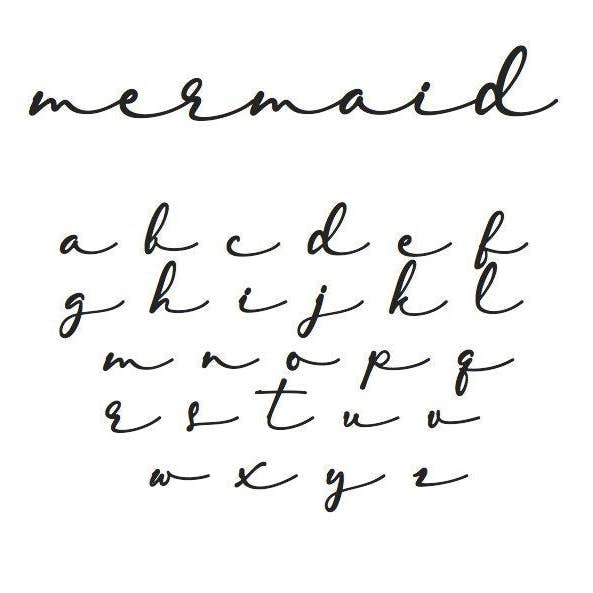 mermaid
a b c d e f
g h i j k l
m n o p q
r s t u v
w x y z